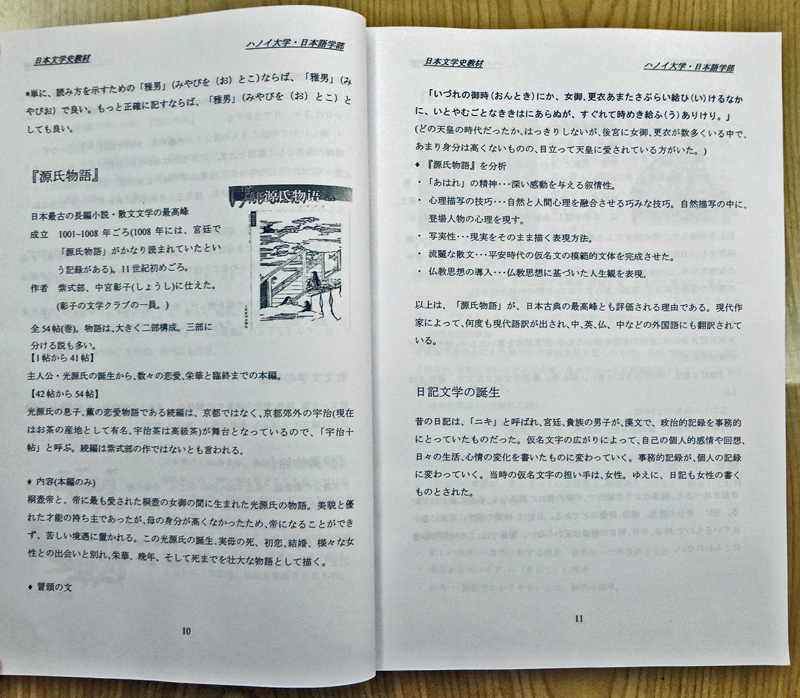 日本文学史教材
ハノイ大学・日本語学部
*単に、読み方を示すための「雅男」(みやびを(お)とこ)ならば、「雅男」(み
やびお)で良い。もっと正確に記すならば、「雅男」(みやをびを(お)とこ)と
しても良い。
『源氏物語』
源氏物語
日本最古の長編小説・散文文学の最高峰
成立 1001~1008 年ごろ(1008 年には、宮廷で
「源氏物語」がかなり読まれていたとい
う記録がある)。11世紀初めごろ。
作者 紫式部、中宮彰子(しょうし)に仕えた。
(彰子の文学クラブの一員。)
全54帖(巻)。物語は、大きく二部構成。三部に
分ける説も多い。
【1帖から41帖】
主人公・光源氏の誕生から、数々の恋愛、栄華と臨終までの本編。
【42帖から54帖】
光源氏の息子、薫の恋愛物語である続編は、京都ではなく、京都郊外の宇治(現在
はお茶の産地として有名。宇治茶は高級茶)が舞台となっているので、「宇治十
帖」と呼ぶ。続編は紫式部の作ではないとも言われる。
♦ 内容(本編のみ)
桐壺帝と、帝に最も愛された桐壺の女御の間に生まれた光源氏の物語。美貌と優
れた才能の持ち主であったが、母の身分が高くなかったため、帝になることができ
ず、苦しい境遇に置かれる。この光源氏の誕生、実母の死、初恋、結婚、様々な女
性との出会いと別れ、栄華、晩年、そして死までを壮大な物語として描く。
♦ 冒頭の文
10
日本文学史教材
ハノイ大学・日本語学部
「いづれの御時(おんとき)にか、女御、更衣あまたさぶらい給ひ(い)けるなか
に、いとやむごとなききはにあらぬが、すぐれて時めき給ふ(う)ありけり。」
(どの天皇の時代だったか、はっきりしないが、後宮に女御、更衣が数多くいる中で、
あまり身分は高くないものの、目立って天皇に愛されている方がいた。)
♦ 『源氏物語』を分析
・「あはれ」の精神・・・深い感動を与える叙情性。
・心理描写の技巧・・・自然と人間心理を融合させる巧みな技巧。自然描写の中に、
登場人物の心理を現す。
・写実性・・・現実をそのまま描く表現方法。
・流麗な散文・・・平安時代の仮名文の模範的文体を完成させた。
・仏教思想の導入・・・仏教思想に基づいた人生観を表現。
以上は、「源氏物語」が、日本古典の最高峰とも評価される理由である。現代作
家によって、何度も現代語訳が出され、中、英、仏、中などの外国語にも翻訳されて
いる。
日記文学の誕生
昔の日記は、「ニキ」と呼ばれ、宮廷、貴族の男子が、漢文で、政治的記録を事務的
にとっていたものだった。仮名文字の広がりによって、自己の個人的感情や回想、
日々の生活、心情の変化を書いたものに変わっていく。事務的記録が、個人の記録
に変わっていく。当時の仮名文字の担い手は、女性。ゆえに、日記も女性の書く
ものとされた。
11